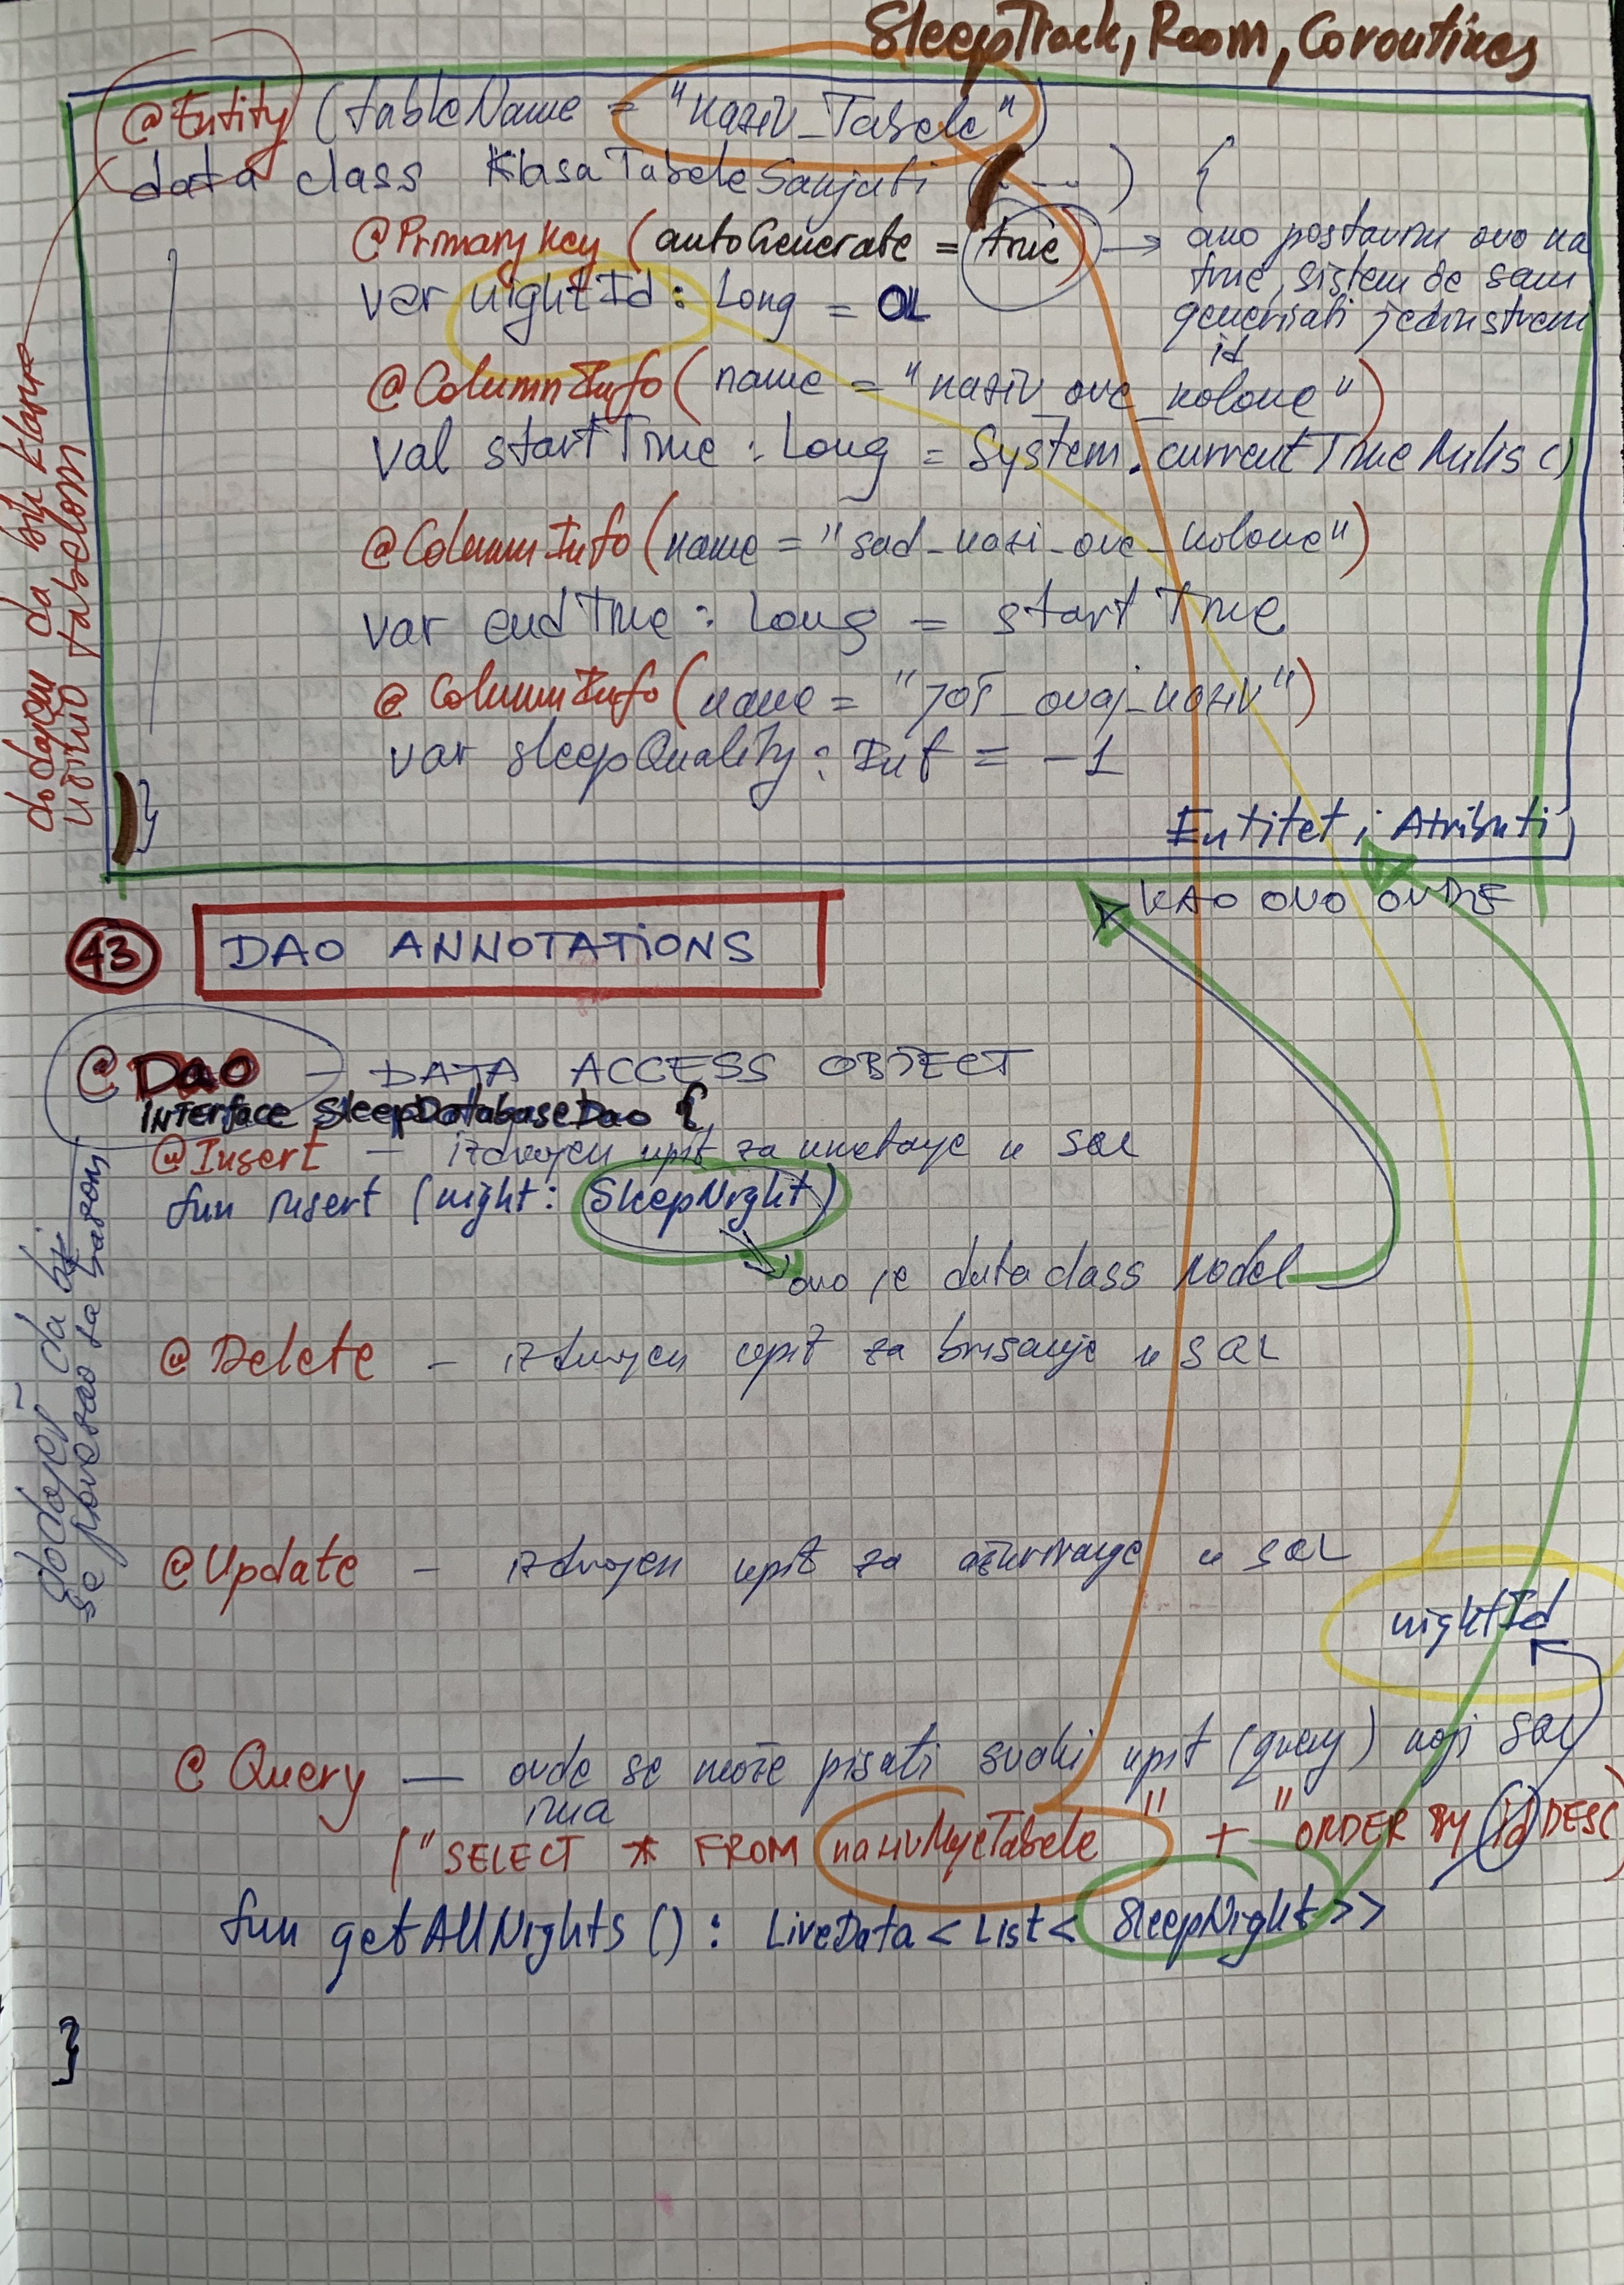 SleepTrack, Room, Coroutines
@Entity (tableName = "naziv_Tabele")
data class KlasaTabeleSanjati (....) {
@PrimaryKey (autoGenerate = true) → ako postavim ovo na
true, sistem će sam
generisati jedinstveni
id
var nightId : Long = 0L
@ColumnInfo (name = "naziv_ove_kolone")
val startTime : Long = System.currentTimeMilis()
@ColumnInfo (name = "sad_nazi_ove_kolone")
var endTime : Long = startTime
@ColumnInfo (name = "još_ovaj_naziv")
var sleepQuality : Int = -1
}
Entitet i Atributi
dodajem da bih klasu
učinio tabelom
KAO OVO OVDJE
43 DAO ANNOTATIONS
@Dao - DATA ACCESS OBJECT
INTERFACE SleepDatabaseDao {
@Insert - izdvojen upit za umetanje u SQL
fun insert (night: SleepNight)
ovo je data class model
@Delete - izdvojen upit za brisanje u SQL
@Update - izdvojen upit za ažuriranje u SQL
dodaješ da bi
se povezao sa bazom
nightId
@Query — ovde se može pisati svaki upit (query) koji SQL
ima
("SELECT * FROM nazivMojeTabele" + "ORDER BY id DESC)
fun getAllNights () : LiveData<List<SleepNight>>
}